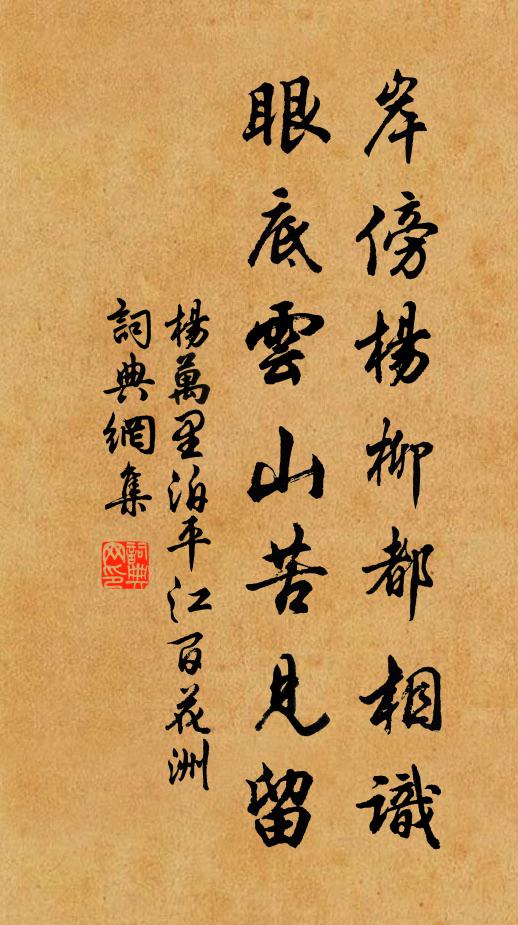 岸傍楊柳都相識
眼底雲山苦見留
楊萬里泊平江百花洲
詞典網集
詞典網印